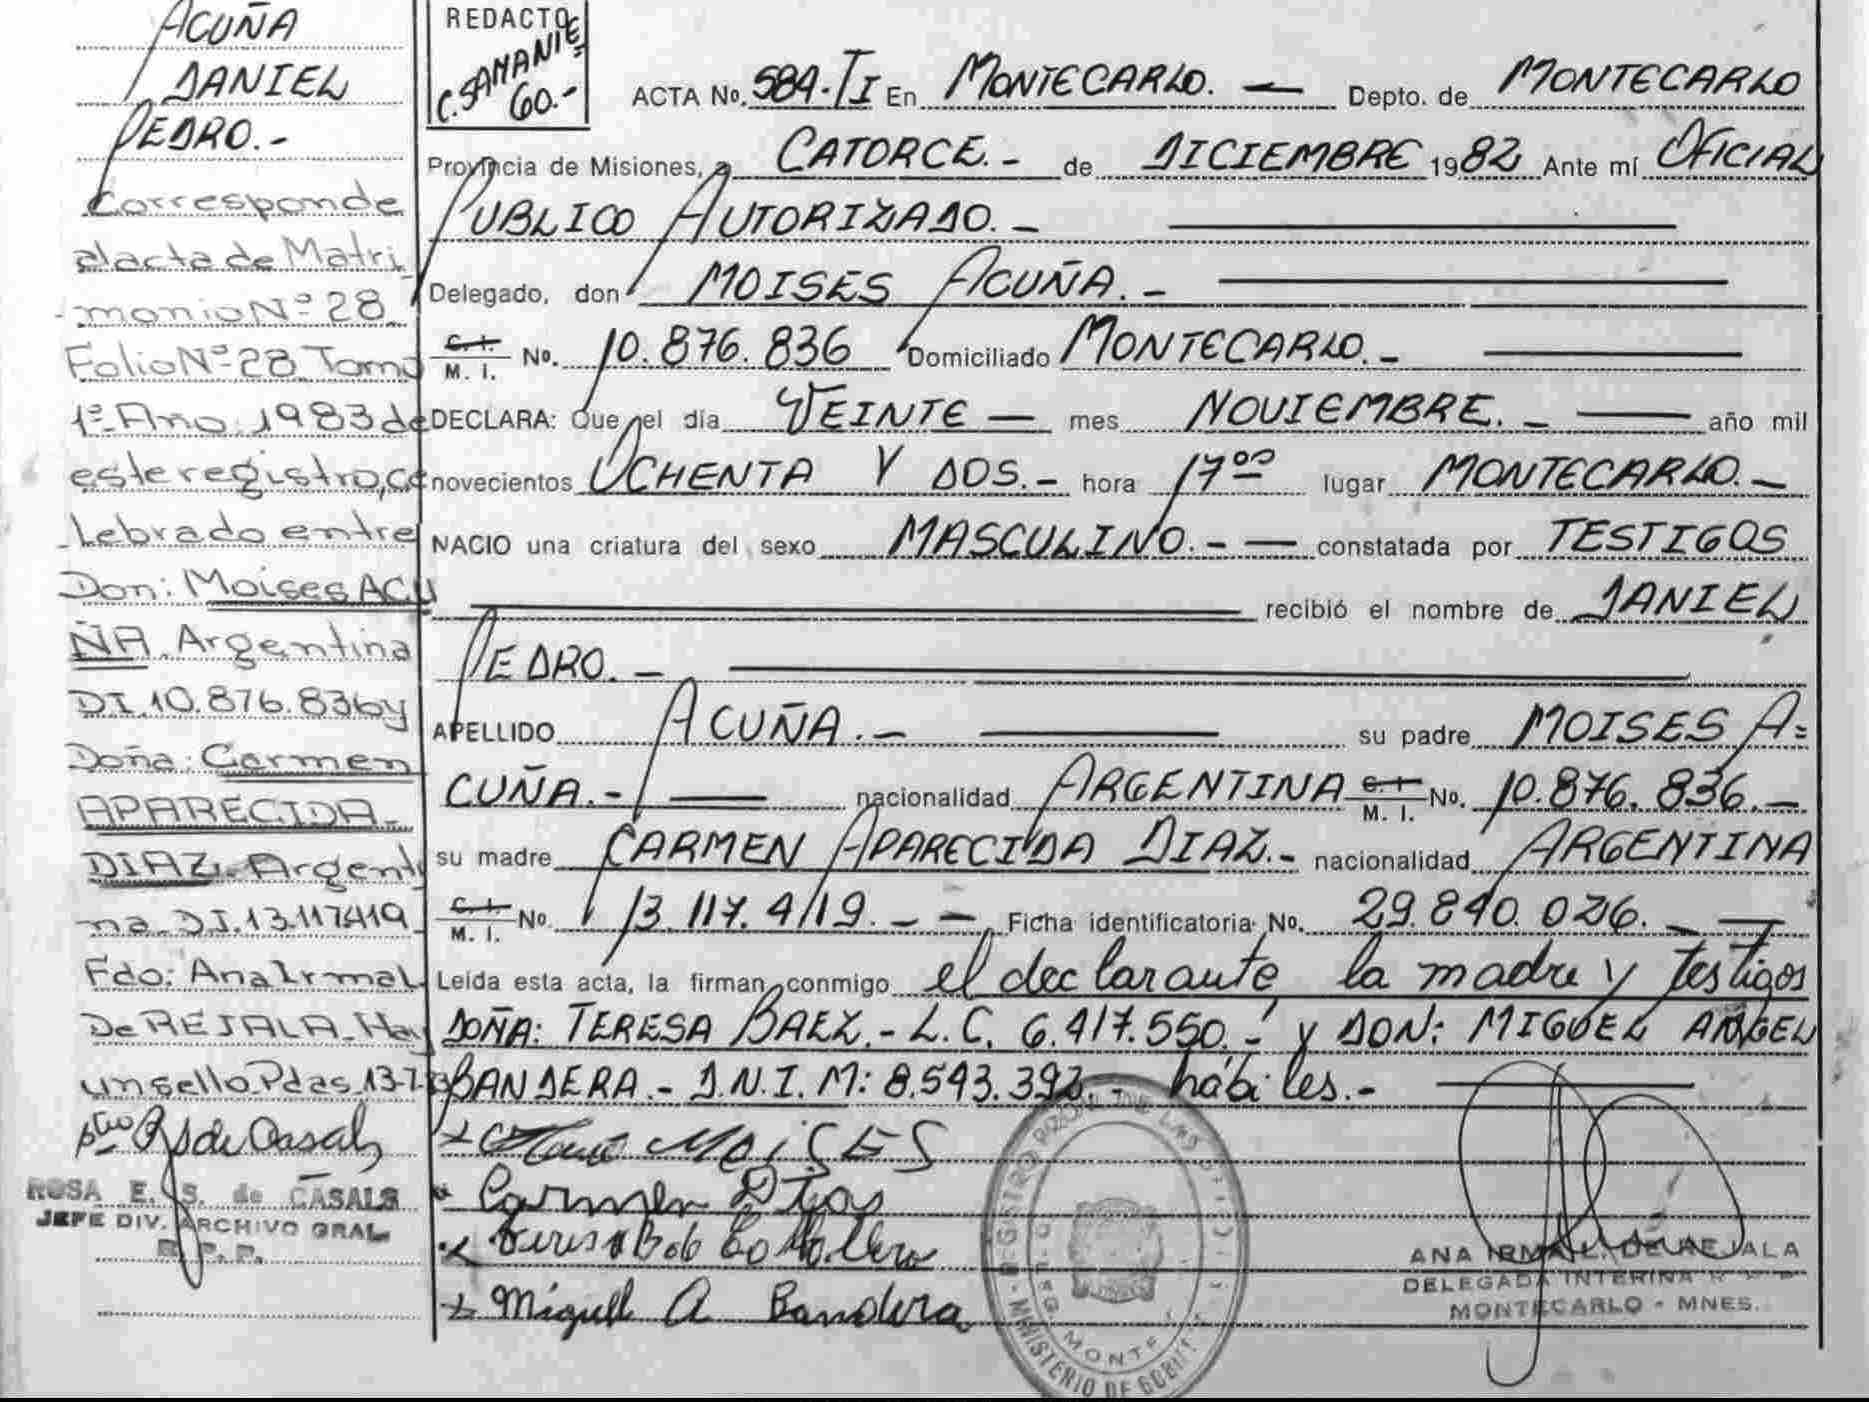 ACUÑA
DANIEL
PEDRO.-
Corresponde
al acta de Matri
monio Nº 28
Folio Nº 28 Tomo
1º Año 1983 de
este registro, ce
lebrado entre
Don: Moises ACU
ÑA. Argentina
DI. 10.876.836 y
Doña: Carmen
APARECIDA
DIAZ. Argenti
na. DI. 13.117.419
Fdo: Ana Irma L
De REJALA. Hay
un sello Pdas. 13-7-83
R S de Casals
ROSA E. S. de CASALS
JEFE DIV. ARCHIVO GRAL.
R. P. P.
REDACTO
C. SAMANIE=
GO.-
ACTA No. 584-TI En MONTECARLO. — Depto. de MONTECARLO
Provincia de Misiones, a CATORCE.- de DICIEMBRE 1982 Ante mí OFICIAL
PUBLICO AUTORIZADO.-
Delegado, don MOISES ACUÑA.-
C. I. M. I. No. 10.876.836 Domiciliado MONTECARLO.-
DECLARA: Que el día VEINTE — mes NOVIEMBRE.- año mil
novecientos OCHENTA Y DOS.- hora 17⁰⁰ lugar MONTECARLO.-
NACIO una criatura del sexo MASCULINO.- — constatada por TESTIGOS
recibió el nombre de DANIEL
PEDRO.-
APELLIDO ACUÑA.- su padre MOISES A=
CUÑA.- nacionalidad ARGENTINA C. I. M. I. No. 10.876.836.-
su madre CARMEN APARECIDA DIAZ.- nacionalidad ARGENTINA
C. I. M. I. No. 13.117.419.- — Ficha identificatoria No. 29.840.026.-
Leída esta acta, la firman conmigo el declarante la madre y testigos
DOÑA: TERESA BAEZ.- L.C. 6.417.550.- y DON: MIGUEL ANGEL
BANDERA.- D.N.I.M: 8.543.392.- hábiles.-
MOISES
Carmen Dias
Miguel A Bandera
ANA IRMA L. DE REJALA
DELEGADA INTERINA
MONTECARLO - MNES.
MINISTERIO DE GOB